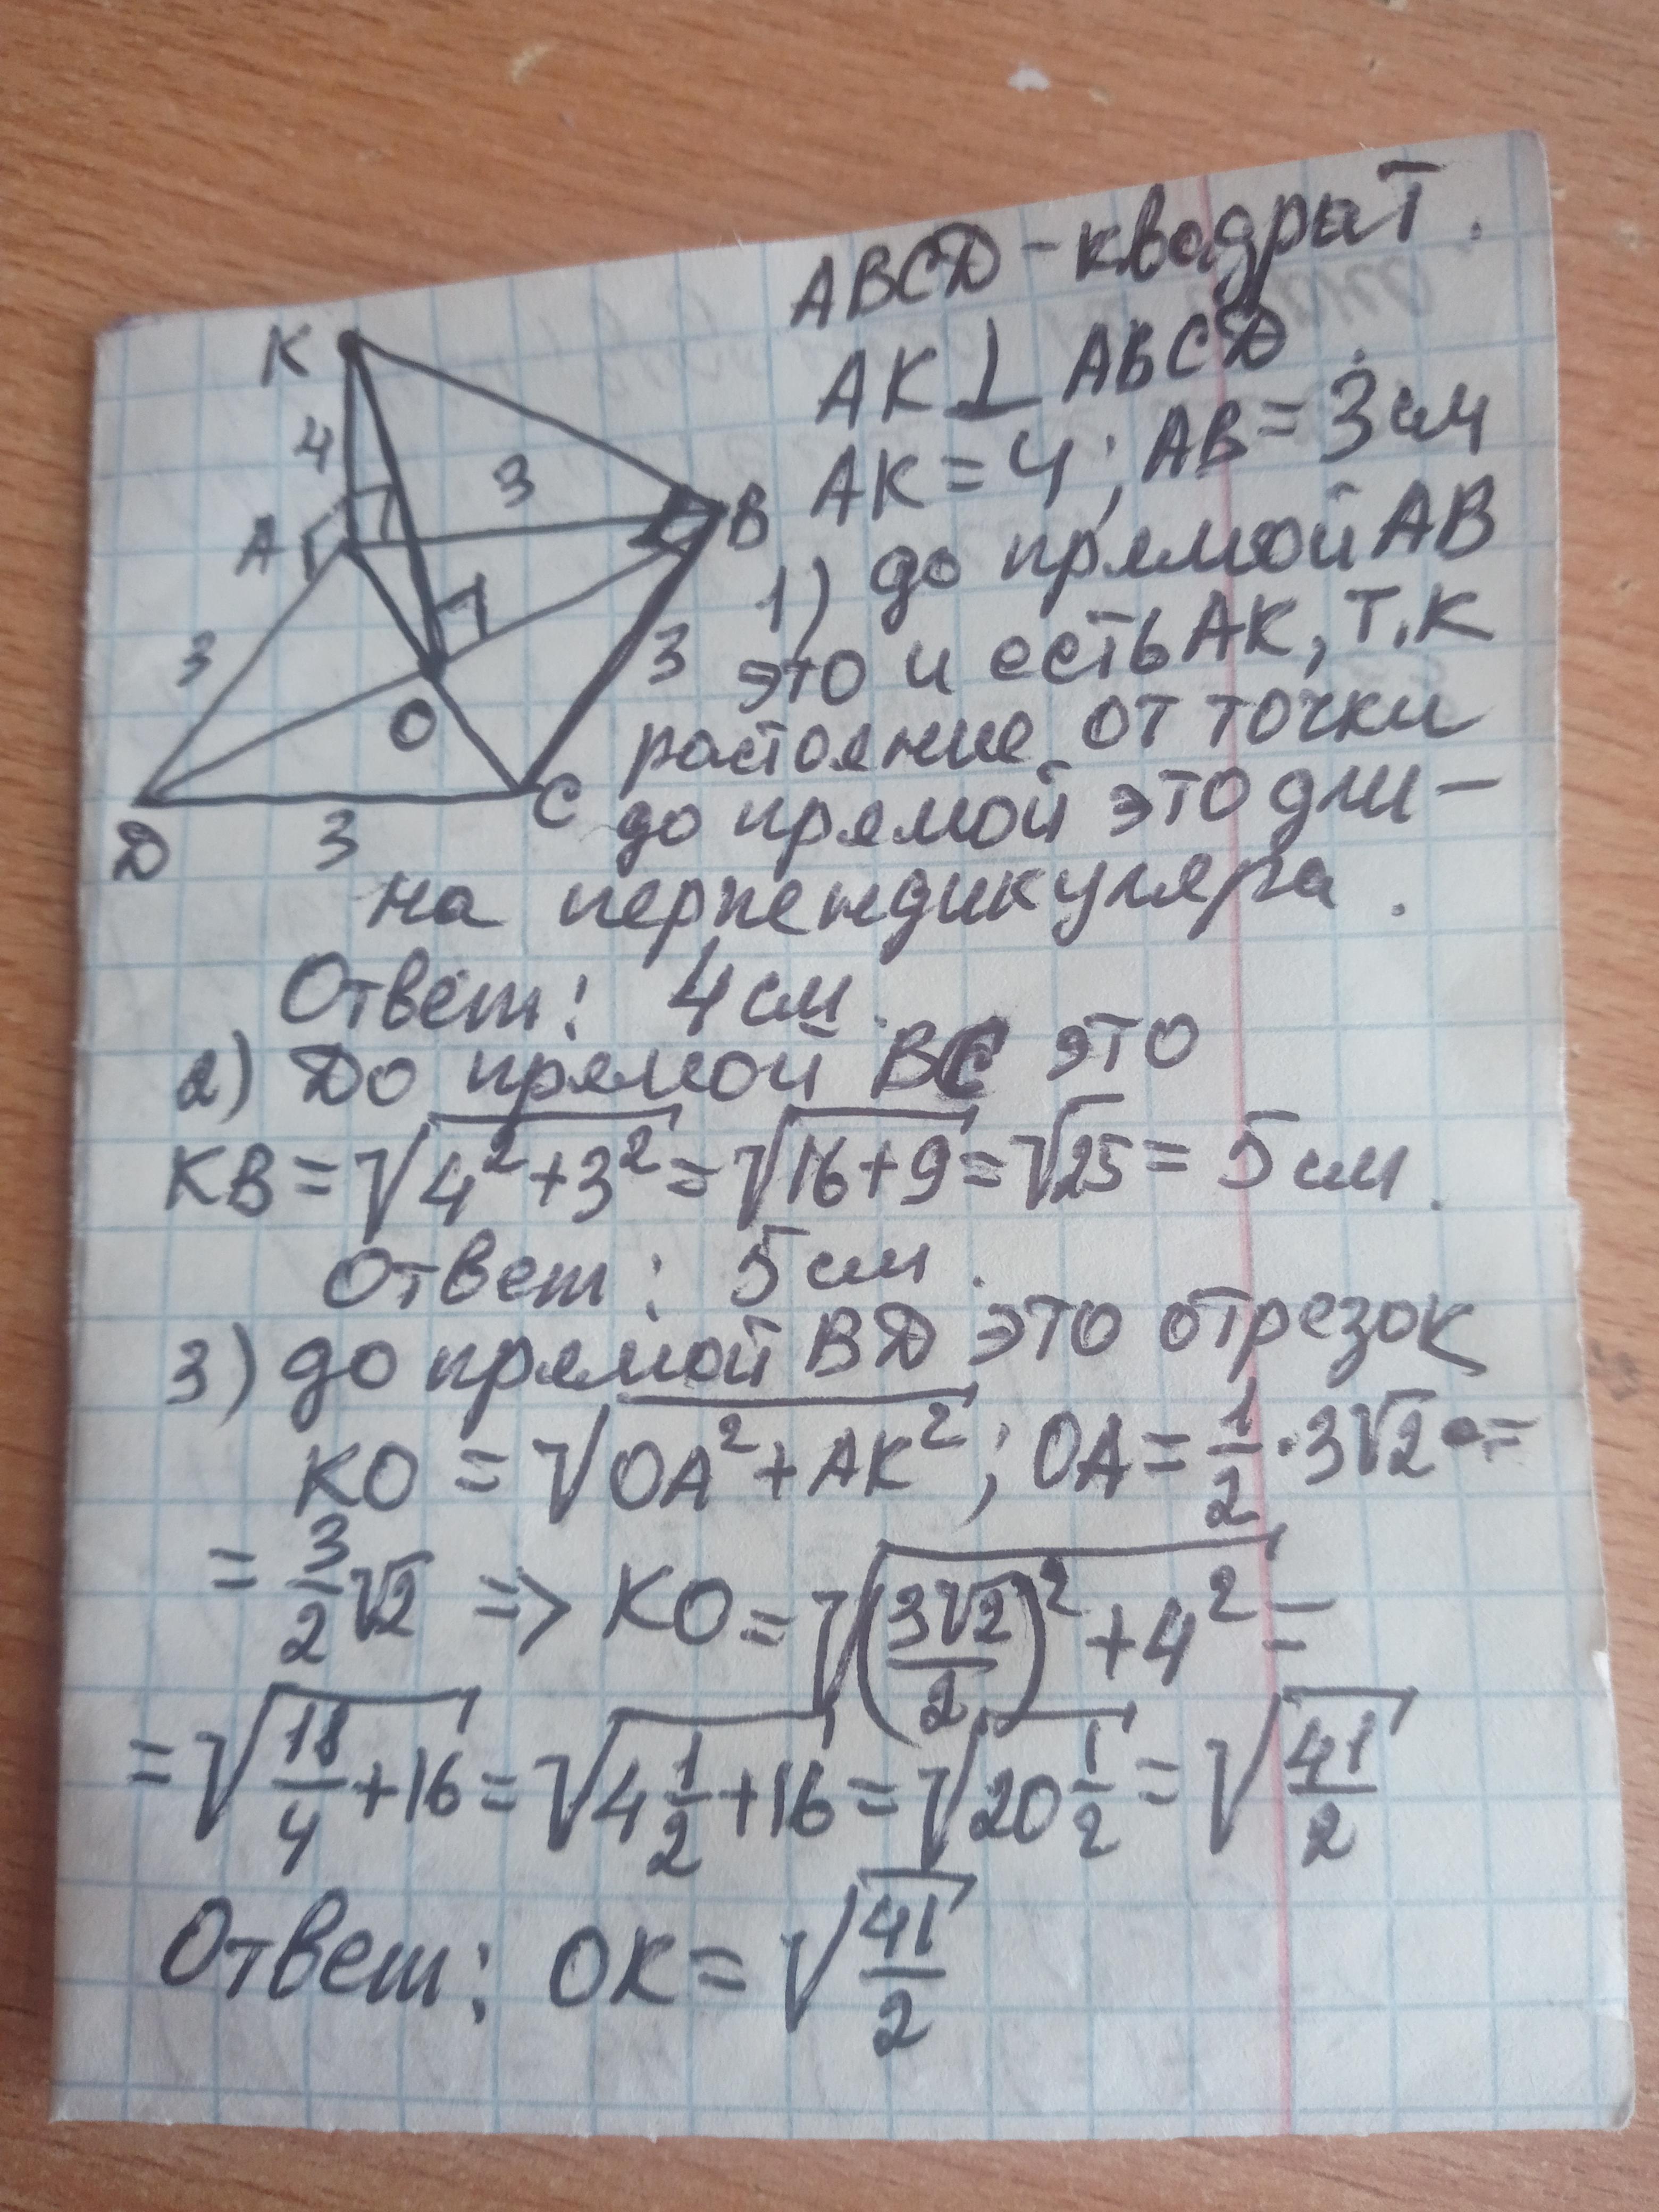 ABCD - квадрат.
AK ⊥ ABCD.
AK = 4; AB = 3 см
1) до прямой AB
это и есть AK, т.к
растояние от точки
до прямой это дли-
на перпендикуляра.
Ответ: 4 см.
2) До прямой BC это
KB = √(4² + 3²) = √(16 + 9) = √25 = 5 см.
Ответ: 5 см.
3) до прямой BД это отрезок
KO = √(OA² + AK²); OA = 1/2 · 3√2 =
= 3/2 √2 => KO = √((3√2/2)² + 4²) =
= √(18/4 + 16) = √(4 1/2 + 16) = √(20 1/2) = √(41/2)
Ответ: OK = √(41/2)
K
4
3
A
B
3
3
O
C
Д
3